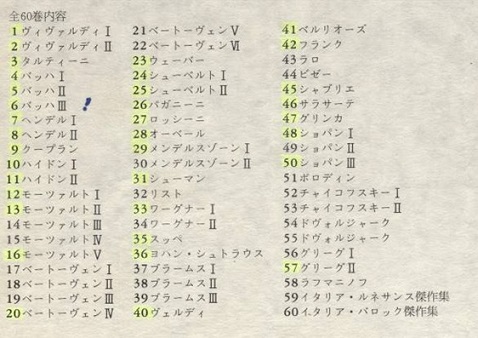 全60巻内容
1 ヴィヴァルディⅠ
2 ヴィヴァルディⅡ
3 タルティーニ
4 バッハⅠ
5 バッハⅡ
6 バッハⅢ
7 ヘンデルⅠ
8 ヘンデルⅡ
9 クープラン
10 ハイドンⅠ
11 ハイドンⅡ
12 モーツァルトⅠ
13 モーツァルトⅡ
14 モーツァルトⅢ
15 モーツァルトⅣ
16 モーツァルトⅤ
17 ベートーヴェンⅠ
18 ベートーヴェンⅡ
19 ベートーヴェンⅢ
20 ベートーヴェンⅣ
21 ベートーヴェンⅤ
22 ベートーヴェンⅥ
23 ウェーバー
24 シューベルトⅠ
25 シューベルトⅡ
26 パガニーニ
27 ロッシーニ
28 オーベール
29 メンデルスゾーンⅠ
30 メンデルスゾーンⅡ
31 シューマン
32 リスト
33 ワーグナーⅠ
34 ワーグナーⅡ
35 スッペ
36 ヨハン・シュトラウス
37 ブラームスⅠ
38 ブラームスⅡ
39 ブラームスⅢ
40 ヴェルディ
41 ベルリオーズ
42 フランク
43 ラロ
44 ビゼー
45 シャブリエ
46 サラサーテ
47 グリンカ
48 ショパンⅠ
49 ショパンⅡ
50 ショパンⅢ
51 ボロディン
52 チャイコフスキーⅠ
53 チャイコフスキーⅡ
54 ドヴォルジャーク
55 ドヴォルジャーク
56 グリーグⅠ
57 グリーグⅡ
58 ラフマニノフ
59 イタリア・ルネサンス傑作集
60 イタリア・バロック傑作集